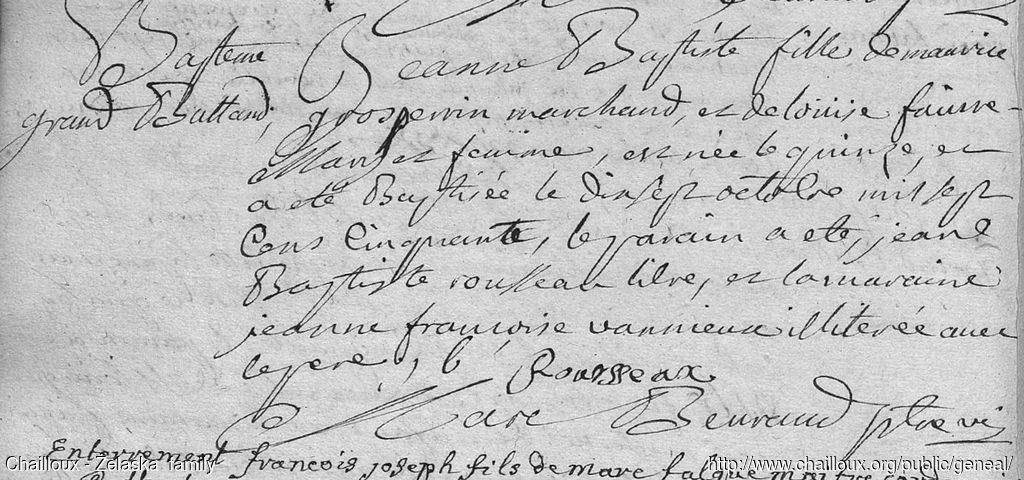 Bapteme
grand Battand,
Jeanne Baptiste fille de maurice
grosperrin marchand, et de louise faivre
Mary et femme, est née le quinze, et
a eté Baptisée le dixsept octobre mil sept
Cens Cinquante, le parain a eté, jean
Baptiste rousseau libre, et la maraine
jeanne francoise vannieux illiterée avec
le pere,
Rousseaux
Marc Beuraud ptre vic
Enterrement francois joseph fils de marc
Chailloux - Zelaska family
http://www.chailloux.org/public/geneal/